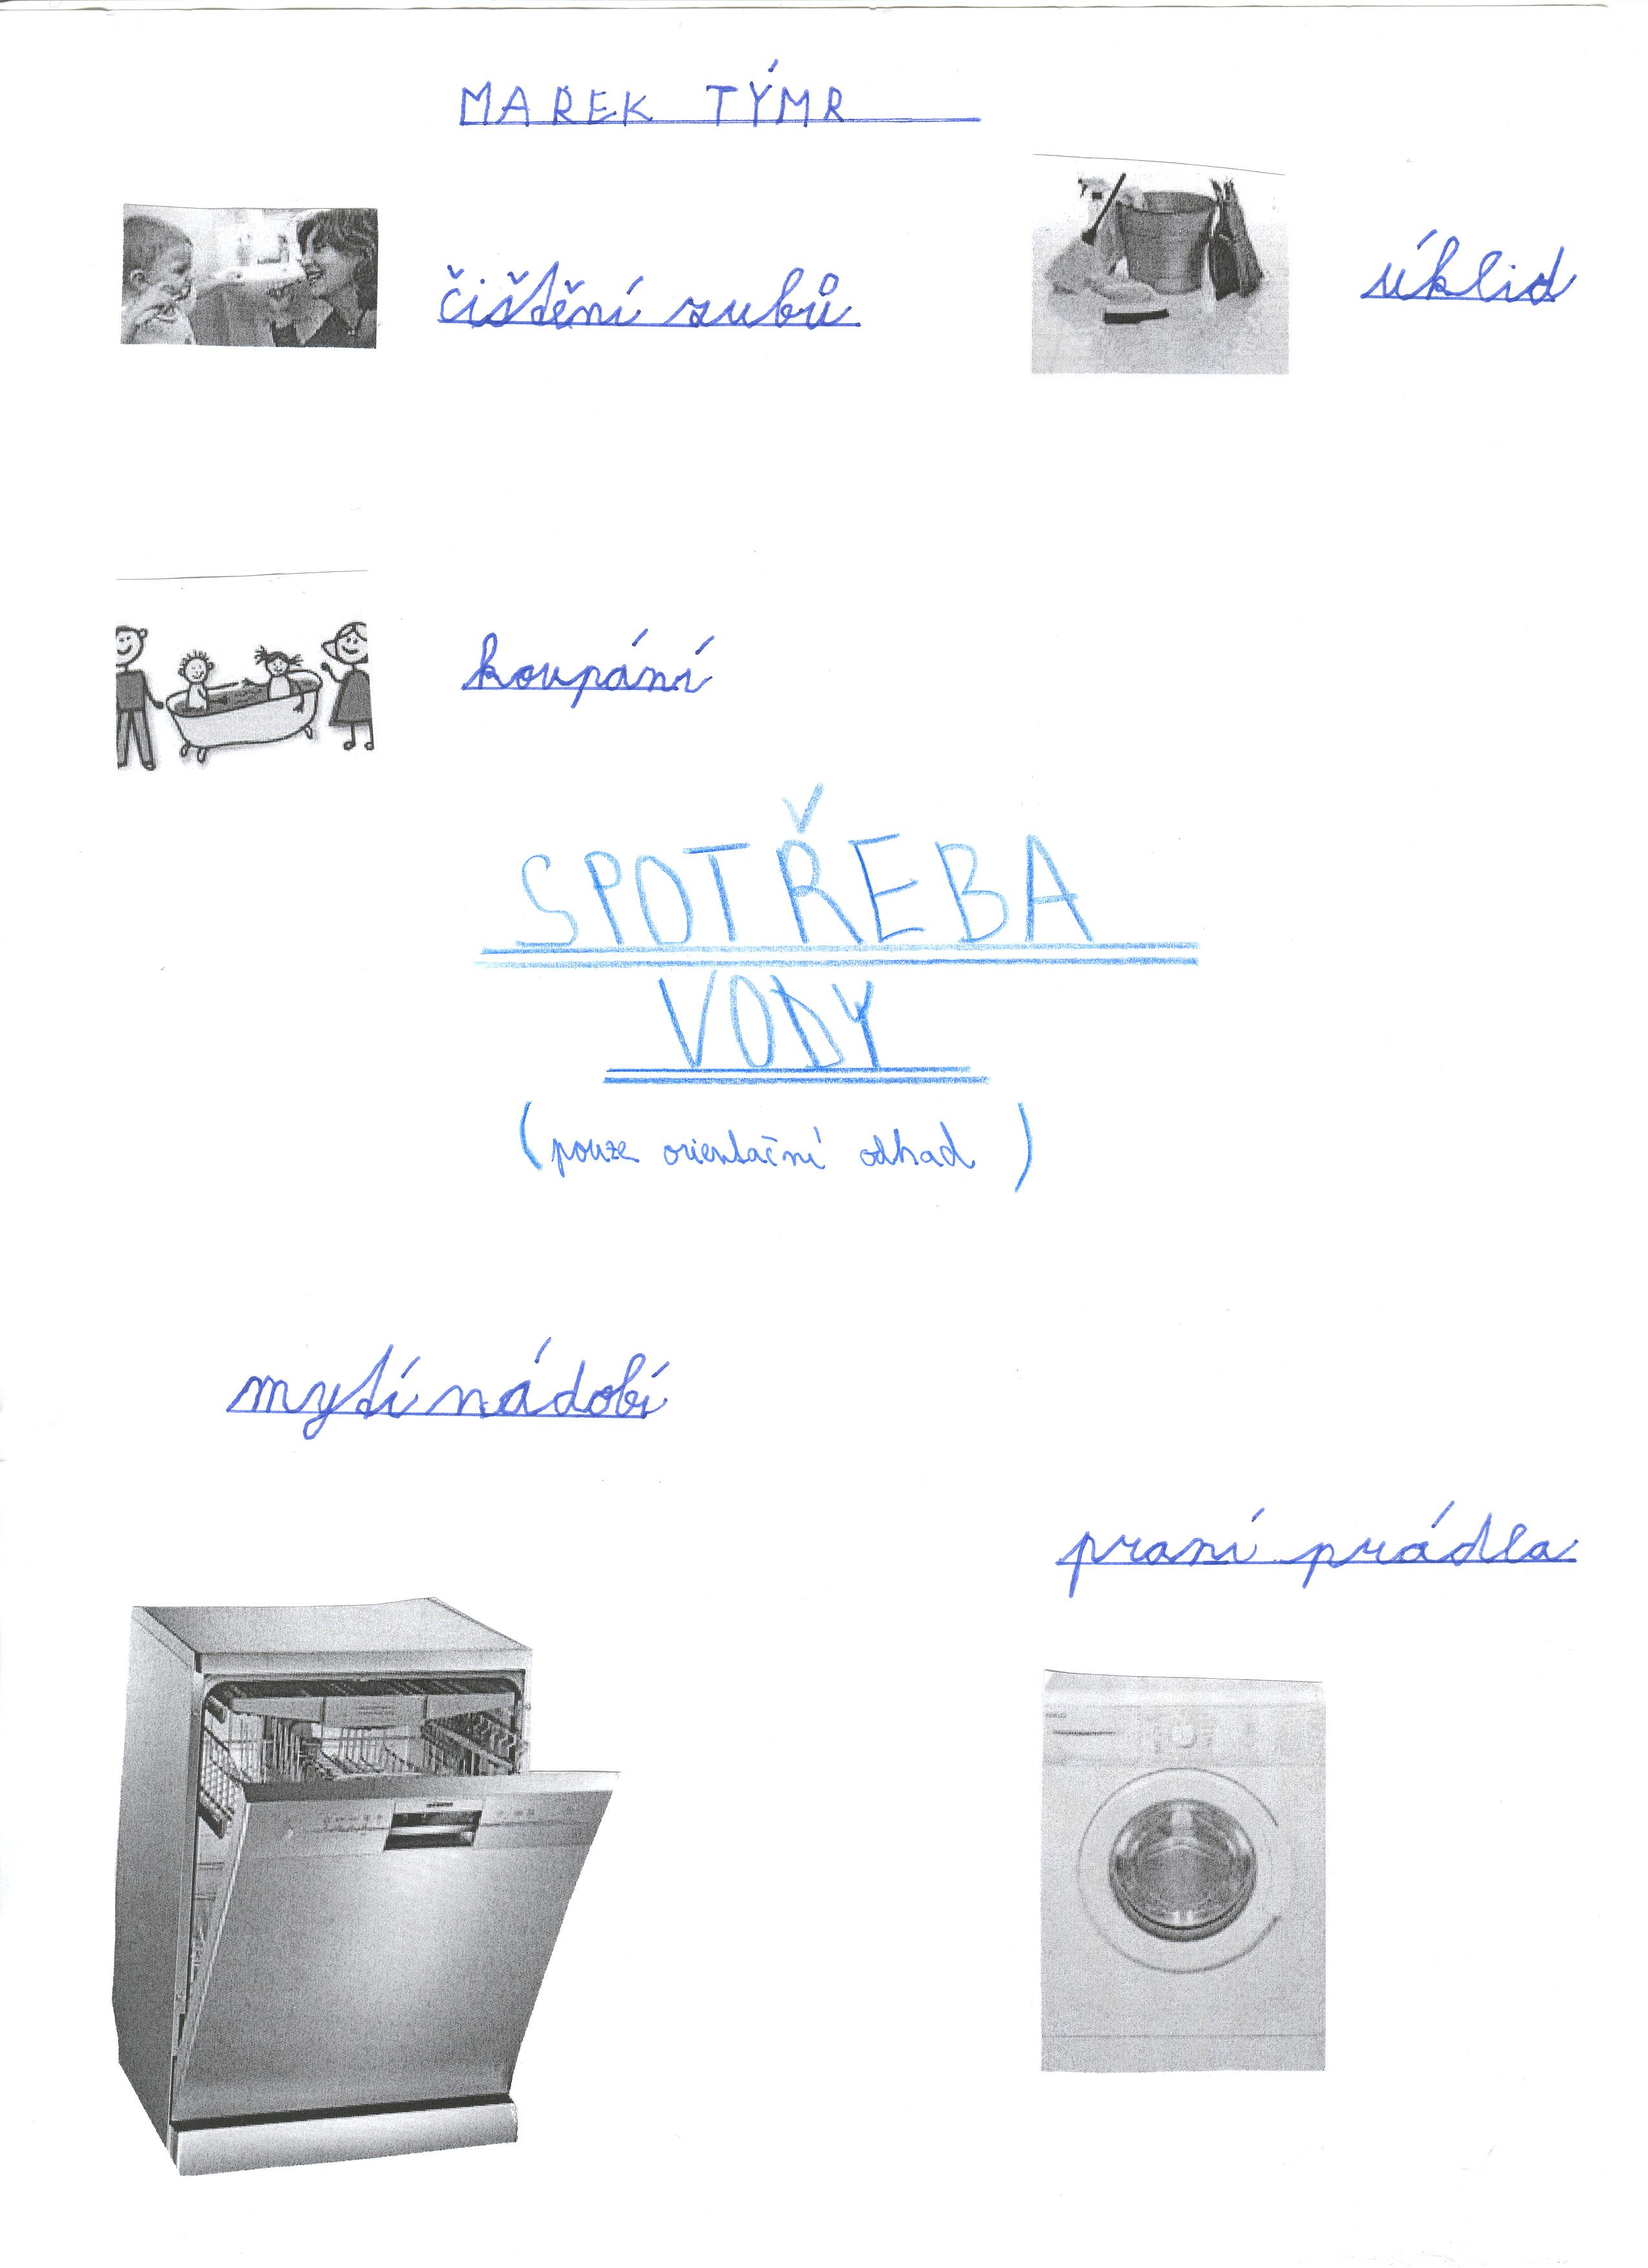 MAREK TÝMR
čištění zubů
úklid
koupání
SPOTŘEBA
VODY
(pouze orientační odhad)
mytí nádobí
praní prádla